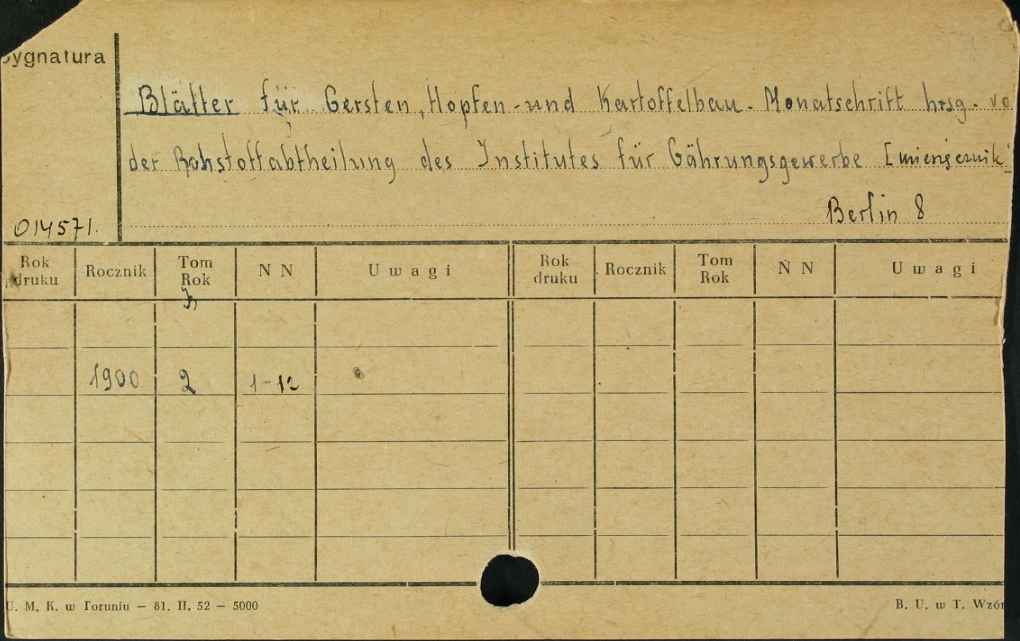 Sygnatura
Blätter für Gersten, Hopfen- und Kartoffelbau. Monatschrift hrsg. vo
der Rohstoffabtheilung des Institutes für Gährungsgewerbe [miesięcznik]
Berlin 8
014571.
Rok druku Rocznik Tom Rok NN Uwagi Rok druku Rocznik Tom Rok NN Uwagi
1900 2 1-12
U. M. K. w Toruniu – 81. II. 52 – 5000 B. U. w T. Wzór